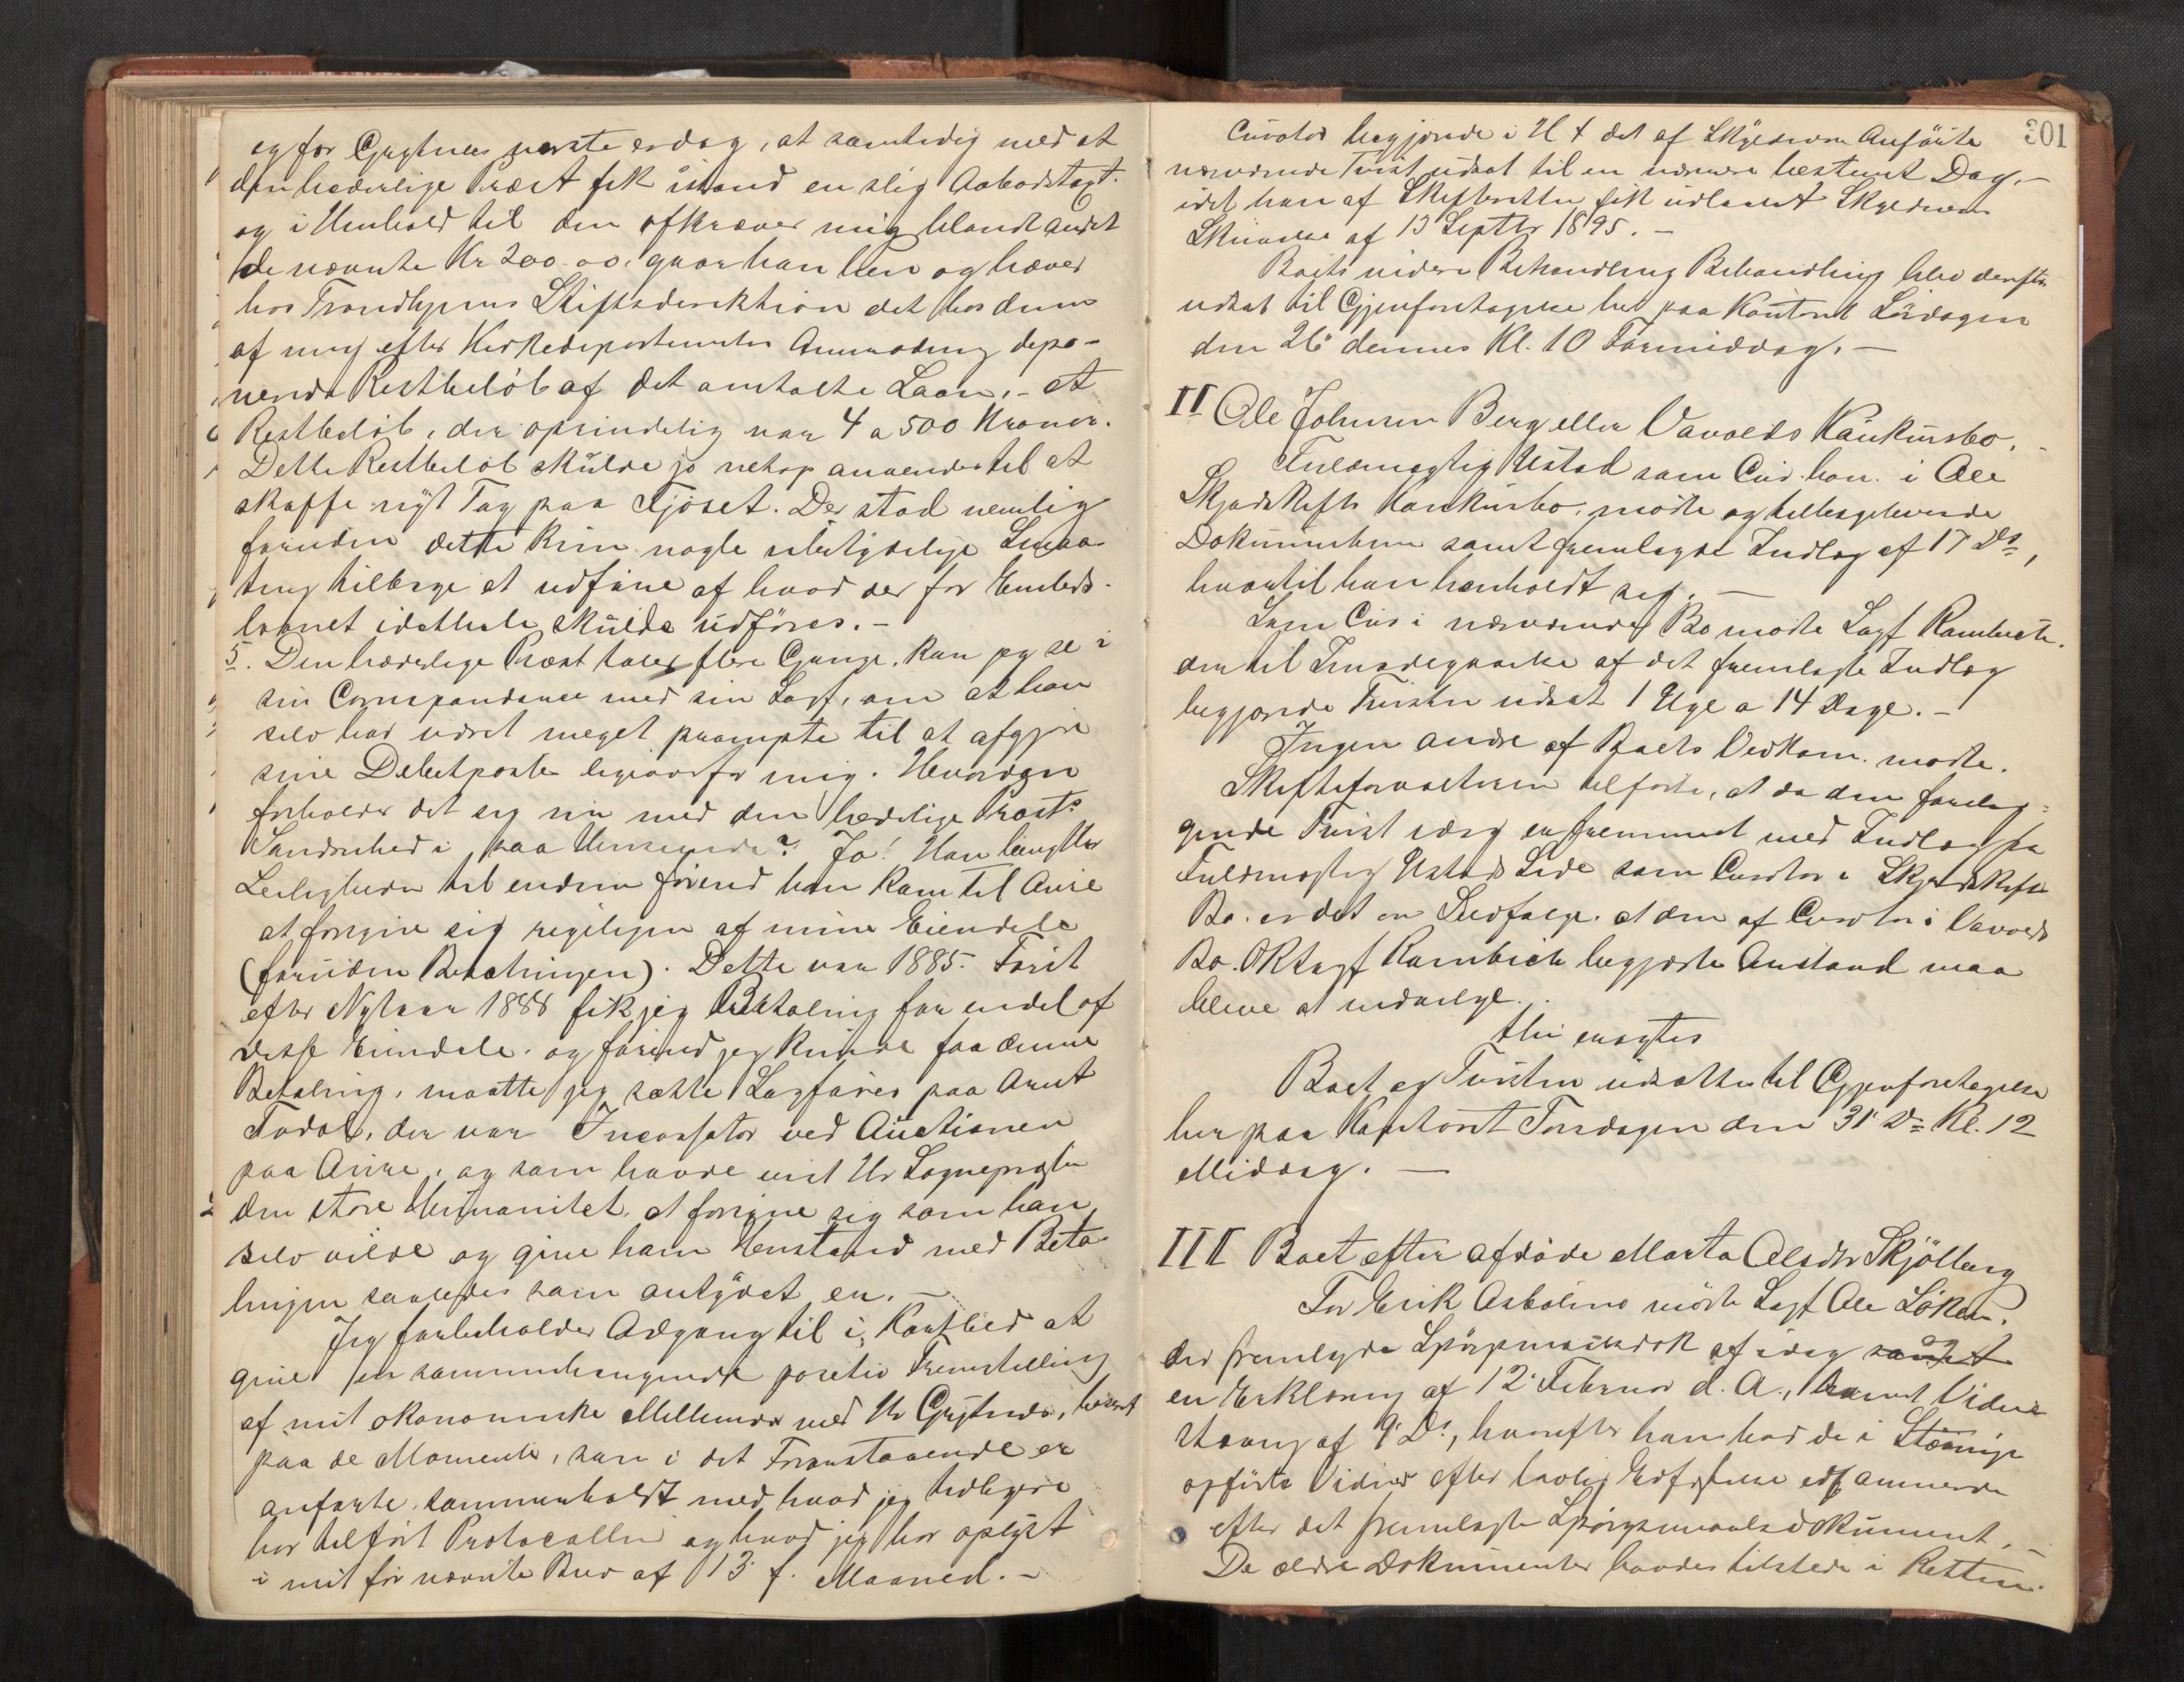 og for Grytnes værste er dog, at samtidig med at
den hæderlige Præst fik istand en slig Aabodstaxt
og i Henhold til den afkræver mig blandt andet
de nævnte Kr 200.00. gaar han hen og hæver
hos Trondhjems Stiftsdirektion det hos dem
af mig efter Kirkedepartementets Anmodning depo-
nerede Restbeløb af det omtalte Laan, - et
Restbeløb, der oprindelig var 4 a 500 Kroner.
Dette Restbeløb skulde jo netop anvendes til at
skaffe nyt Tag paa Fjøset. Der stod nemlig
foruden dette kun nogle ubetydelige Smaa-
ting tilbage at udføre af hvad der for Embeds-
laanet idethele skulde udføres. -
5. Den hæderlige Præst taler flere Gange, kan jeg se i
sin Correspondance med sin Sagf, om at han
selv har været meget prompte til at afgjøre
sine Debetposter ligeoverfor mig. Hvordan
forholder det sig nu med den hæderlige Præsts
Sandhed i saa Henseende? Jo! Han benytter
Leiligheden til endnu førend han kom til Aure
at forsyne sig rigeligen af mine Eiendele
(foruden Besætningen). Dette var 1885. Først
efter Nytaar 1888 fik jeg Betaling for endel af
disse Eiendele. og førend jeg kunde faa denne
Betaling, maatte jeg sætte Sagfører paa Arnt
Todal, der var Incassator ved Auctionen
paa Aure, og som havde vist Hr Sognepræsten
den store Humanitet, at forsyne sig som han
selv vilde og give ham Henstand med Beta-
lingen saaledes som antydet er. -
Jeg forbeholder Adgang til i Korthed at
give en sammenhængende positiv Fremstilling
af mit økonomiske Mellemvær med Hr Grytnes, baseret
paa de Momenter, som i det Foranstaaende er
anførte sammenholdt med hvad jeg tidligere
har tilført Protocollen og hvad jeg har oplyst
i mit før nævnte Brev af 13' f. Maaned. -
301
Curator begjærede i H t det af Skyldneren Anførte
nærværende Tvist udsat til en nærmere bestemt Dag. -
idet han af Skifteretten fik udlaant Skyldnerens
Skrivelse af 13 Septbr 1895. -
Boets videre Behandling Behandling blev derefter
udsat til Gjenforetagelse her paa Kontoret Lørdagen
den 26' dennes Kl. 10 Formiddag. -
II Ole Johnsen Berg eller Vavolds Konkursbo.
Fuldmægtig Ustad som Cur. bon. i Ole
Skjødskifts Konkursbo, mødte og tilbageleverede
Dokumenterne samt fremlagde Indlæg af 17 Ds,
hvortil han henholdt sig. -
Som Cur i nærværende Bo mødte Sagf Rambech.
der til Imødegaaelse af det fremlagte Indlæg
begjærede Tvisten udsat 1 Uge a 14 Dage. -
Ingen andre af Boets Vedkom. mødte.
Skifteforvalteren tilførte, at da den forelig-
gende Tvist idag er fremmet med Indlæg fra
Fuldmægtig Ustads Side som Curator i Skjødskifts
Bo. er det en Selvfølge, at den af Curator i Vavolds
Bo. ORSagf Rambech begjærte Anstand maa
blive at indvilge.
thi eragtes
Boet og Tvisten udsættes til Gjenforetagelse
her paa Kontoret Torsdagen den 31' Ds Kl. 12
Middag. -
III Boet efter afdøde Marta Olsdtr Skjølberg
For Erik Asbølmo mødte Sagf Ole Løken.
der fremlagde Spørgsmaalsdok af idag samt
en Erklæring af 12' Februar d. A., samt Vidne
stævning af 9' Ds, hvorefter han bad de i Stævningen
opførte Vidner efter lovlig Edfæstelse afhørte
efter det fremlagte Spørgsmaalsdokument. -
De ældre Dokumenter havdes tilstede i Retten.